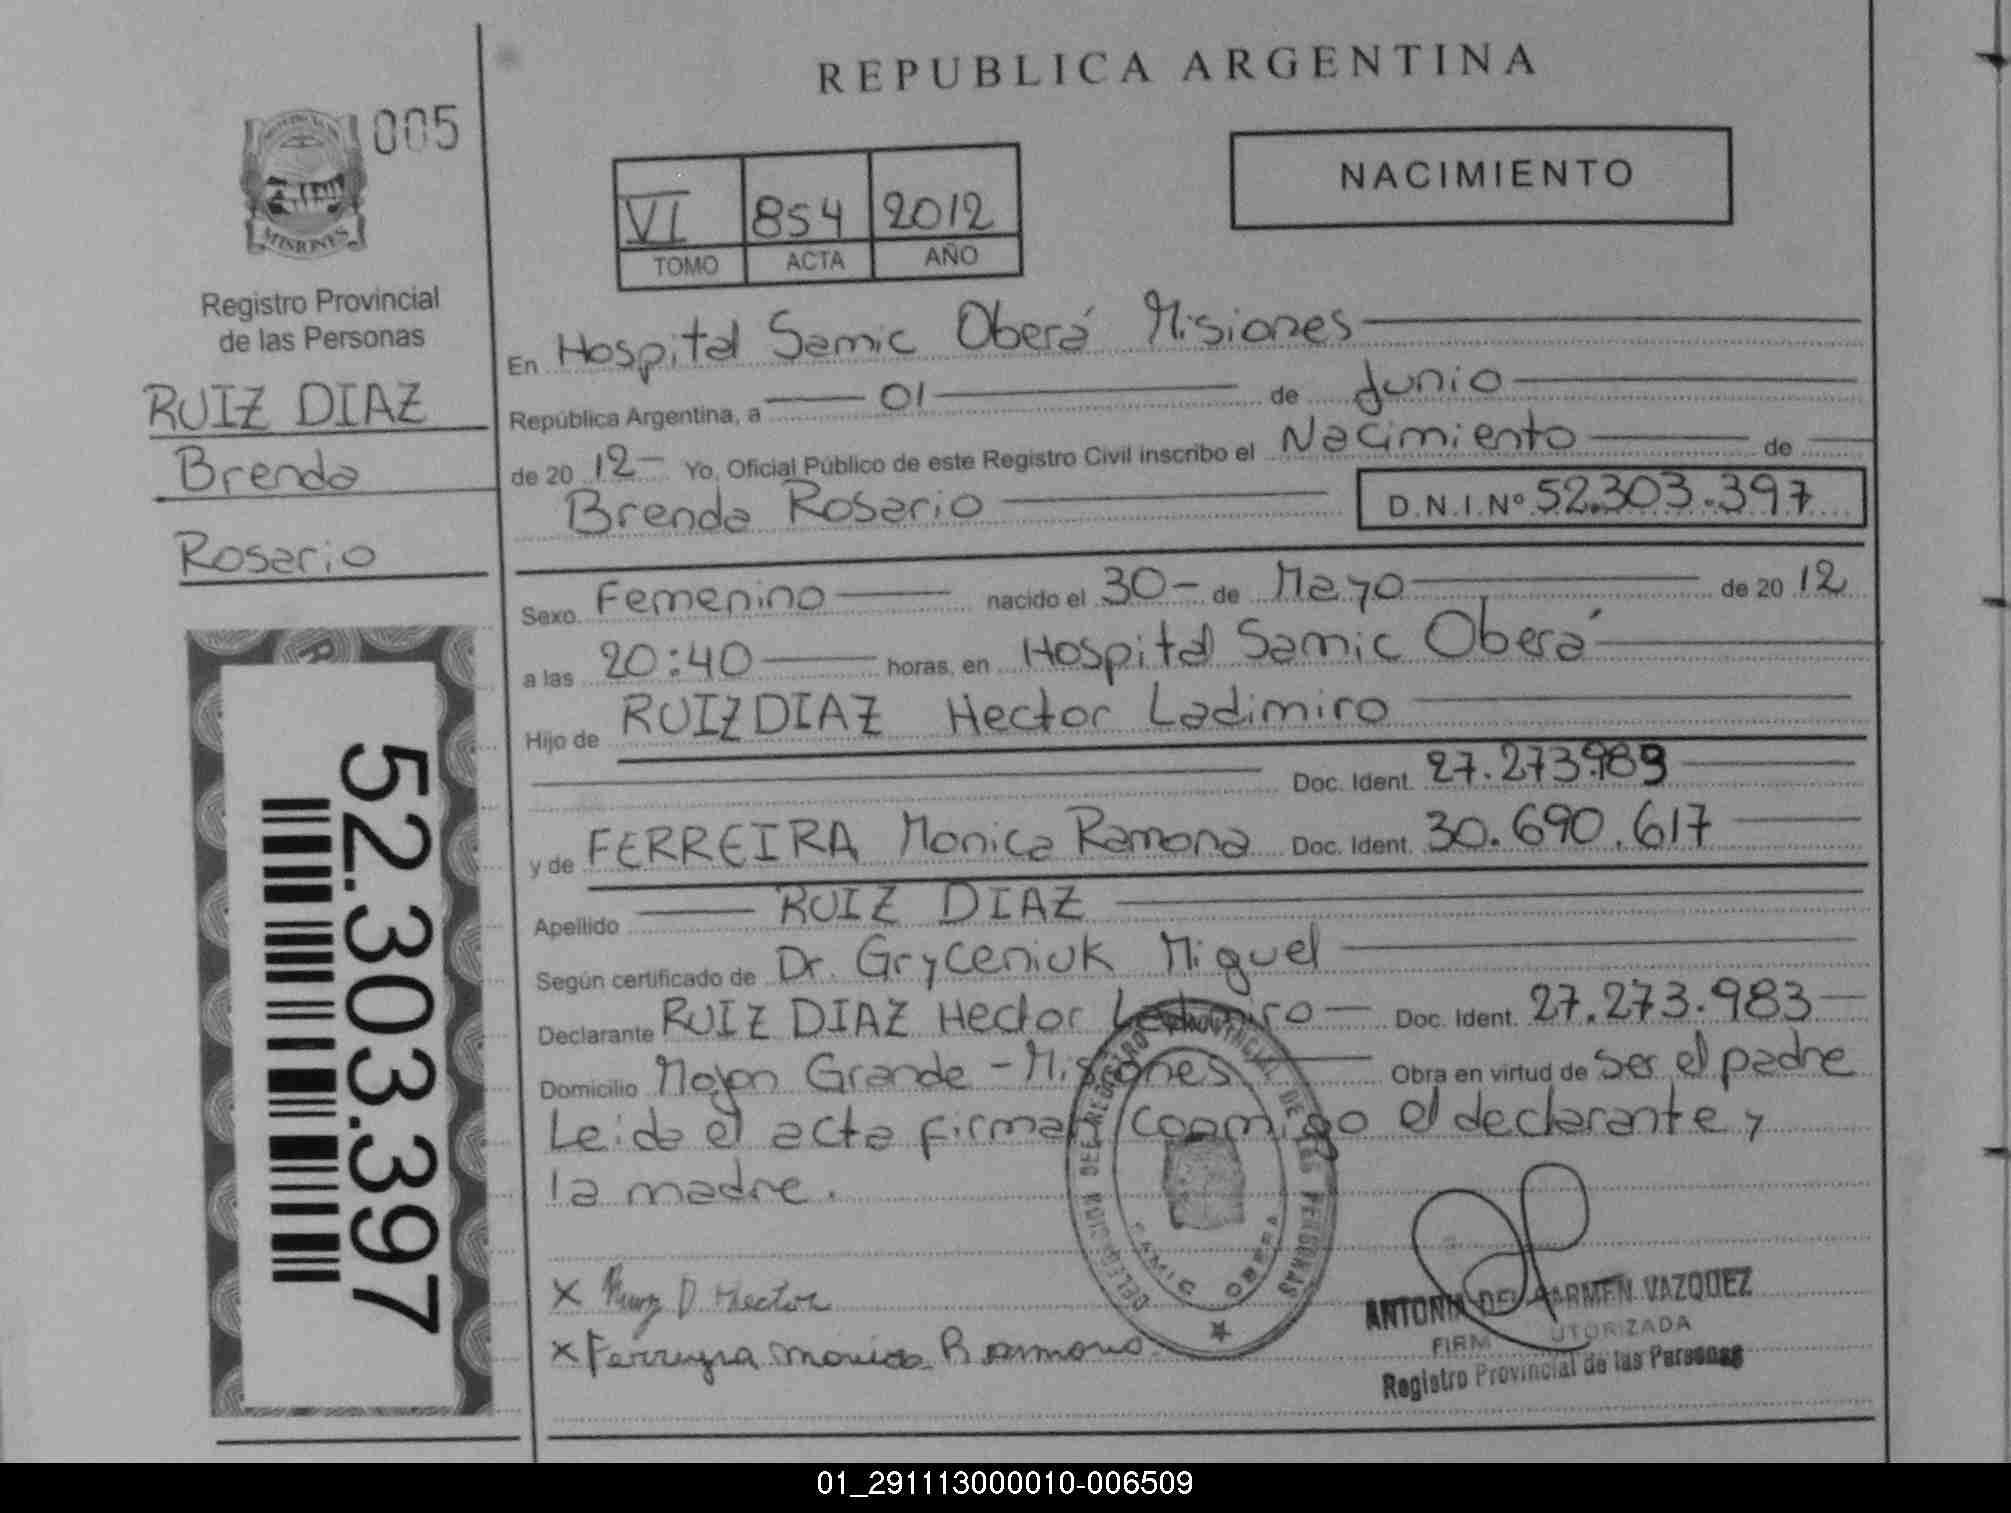 REPUBLICA ARGENTINA
005
MISIONES
Registro Provincial
de las Personas
RUIZ DIAZ
Brenda
Rosario
52.303.397
VI 854 2012
TOMO ACTA AÑO
NACIMIENTO
En Hospital Samic Oberá Misiones
República Argentina, a 01 de Junio
de 20 12 Yo, Oficial Público de este Registro Civil inscribo el Nacimiento de
Brenda Rosario D.N.I.Nº 52.303.397
Sexo Femenino nacido el 30 de Mayo de 20 12
a las 20:40 horas, en Hospital Samic Oberá
Hijo de RUIZ DIAZ Hector Ladimiro
Doc. Ident. 27.273.983
y de FERREIRA Monica Ramona Doc. Ident. 30.690.617
Apellido RUIZ DIAZ
Según certificado de Dr. Gryceniuk Miguel
Declarante RUIZ DIAZ Hector Ladimiro Doc. Ident. 27.273.983
Domicilio Mojon Grande - Misiones Obra en virtud de ser el padre
Leida el acta firman conmigo el declarante y
la madre.
DELEGACION DEL REGISTRO PROVINCIAL DE LAS PERSONAS
OBERA
x Ruiz D Hector
x Ferreyra Monica Ramona
ANTONIA DEL CARMEN VAZQUEZ
FIRMA AUTORIZADA
Registro Provincial de las Personas
01_291113000010-006509